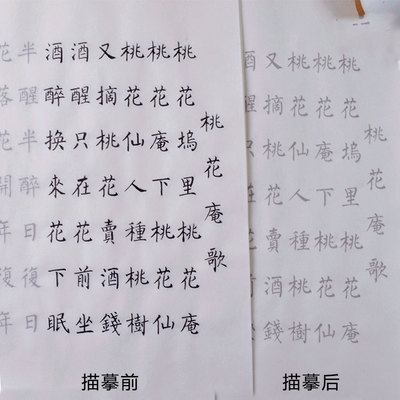 桃花庵歌
桃花塢里桃花庵
桃花庵下桃花仙
桃花仙人種桃樹
又摘桃花賣酒錢
酒醒只在花前坐
酒醉換來花下眠
半醒半醉日復日
花落花開年復年
描摹前
桃花庵歌
桃花塢里桃花庵
桃花庵下桃花仙
桃花仙人種桃樹
又摘桃花賣酒錢
酒醒只在花前坐
描摹后